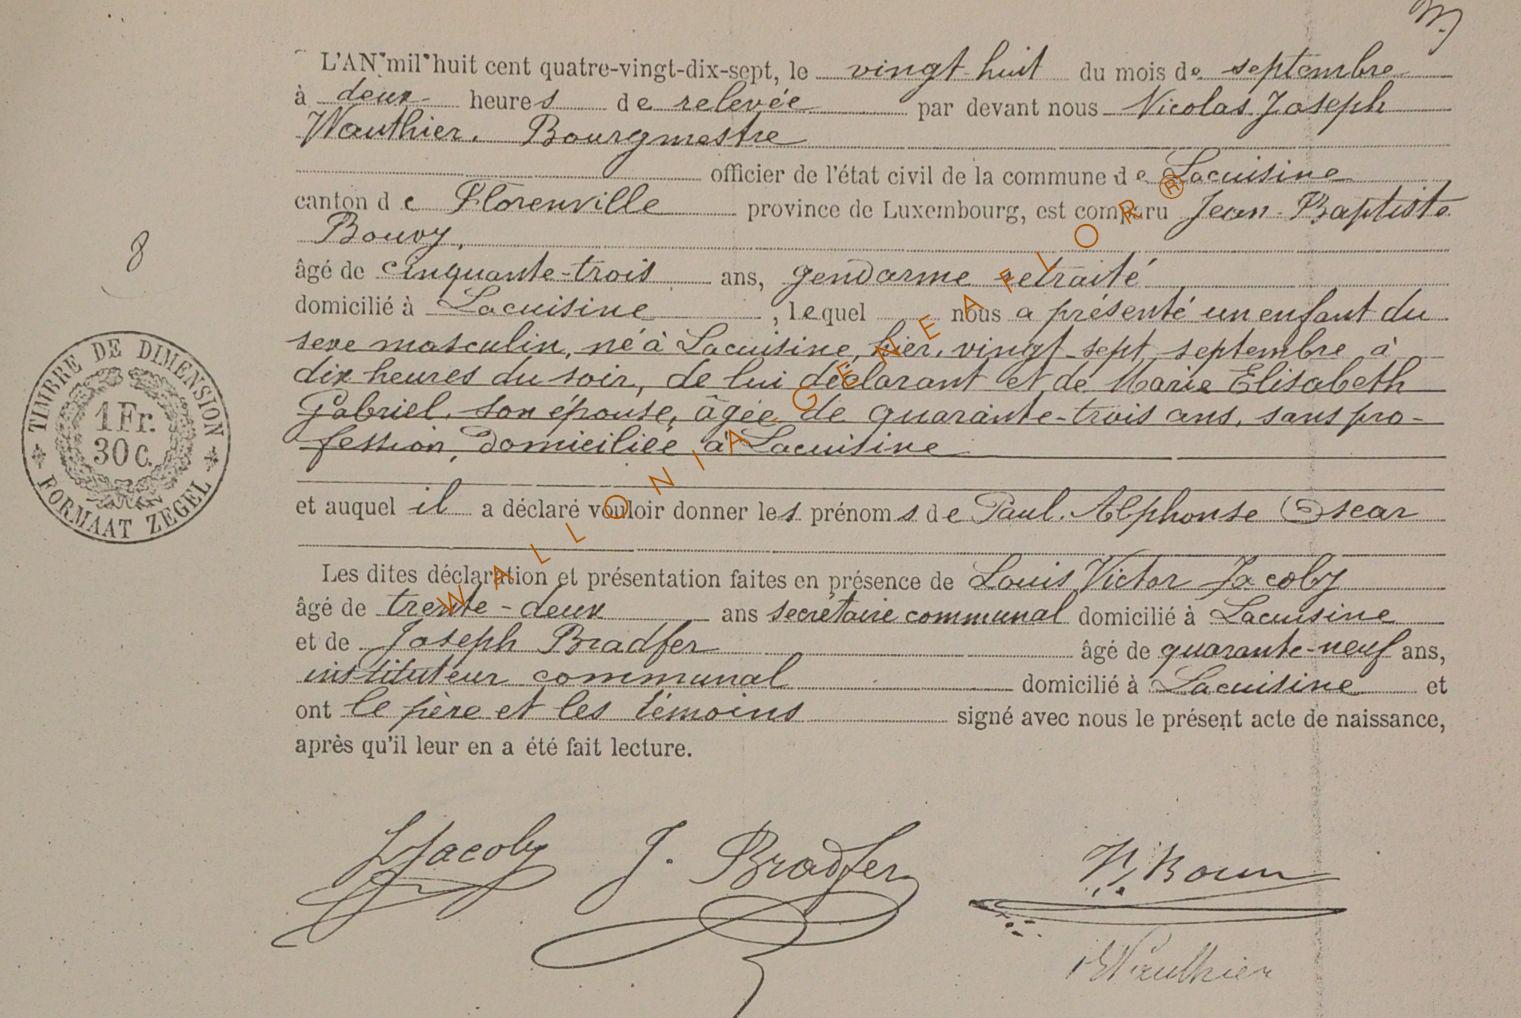 L'AN mil huit cent quatre-vingt-dix-sept, le vingt-huit du mois de septembre
à deux heures de relevée par devant nous Nicolas Joseph
Wauthier, Bourgmestre
officier de l'état civil de la commune de Lacuisine
canton de Florenville province de Luxembourg, est comparu Jean-Baptiste
Bouvy,
âgé de cinquante-trois ans, gendarme retraité
domicilié à Lacuisine, lequel nous a présenté un enfant du
sexe masculin, né à Lacuisine, hier, vingt-sept septembre à
dix heures du soir, de lui déclarant et de Marie Elisabeth
Gabriel, son épouse, âgée de quarante-trois ans, sans pro-
fession, domiciliée à Lacuisine
et auquel il a déclaré vouloir donner les prénoms de Paul Alphonse Oscar
Les dites déclaration et présentation faites en présence de Louis Victor Jacoby
âgé de trente-deux ans secrétaire communal domicilié à Lacuisine
et de Joseph Bradfer âgé de quarante-neuf ans,
instituteur communal domicilié à Lacuisine et
ont le père et les témoins signé avec nous le présent acte de naissance,
après qu'il leur en a été fait lecture.
8
TIMBRE DE DIMENSION
1 Fr.
30 c.
FORMAAT ZEGEL
WALLONIA GENEAFLOR®
Jacoby J. Bradfer
Wauthier